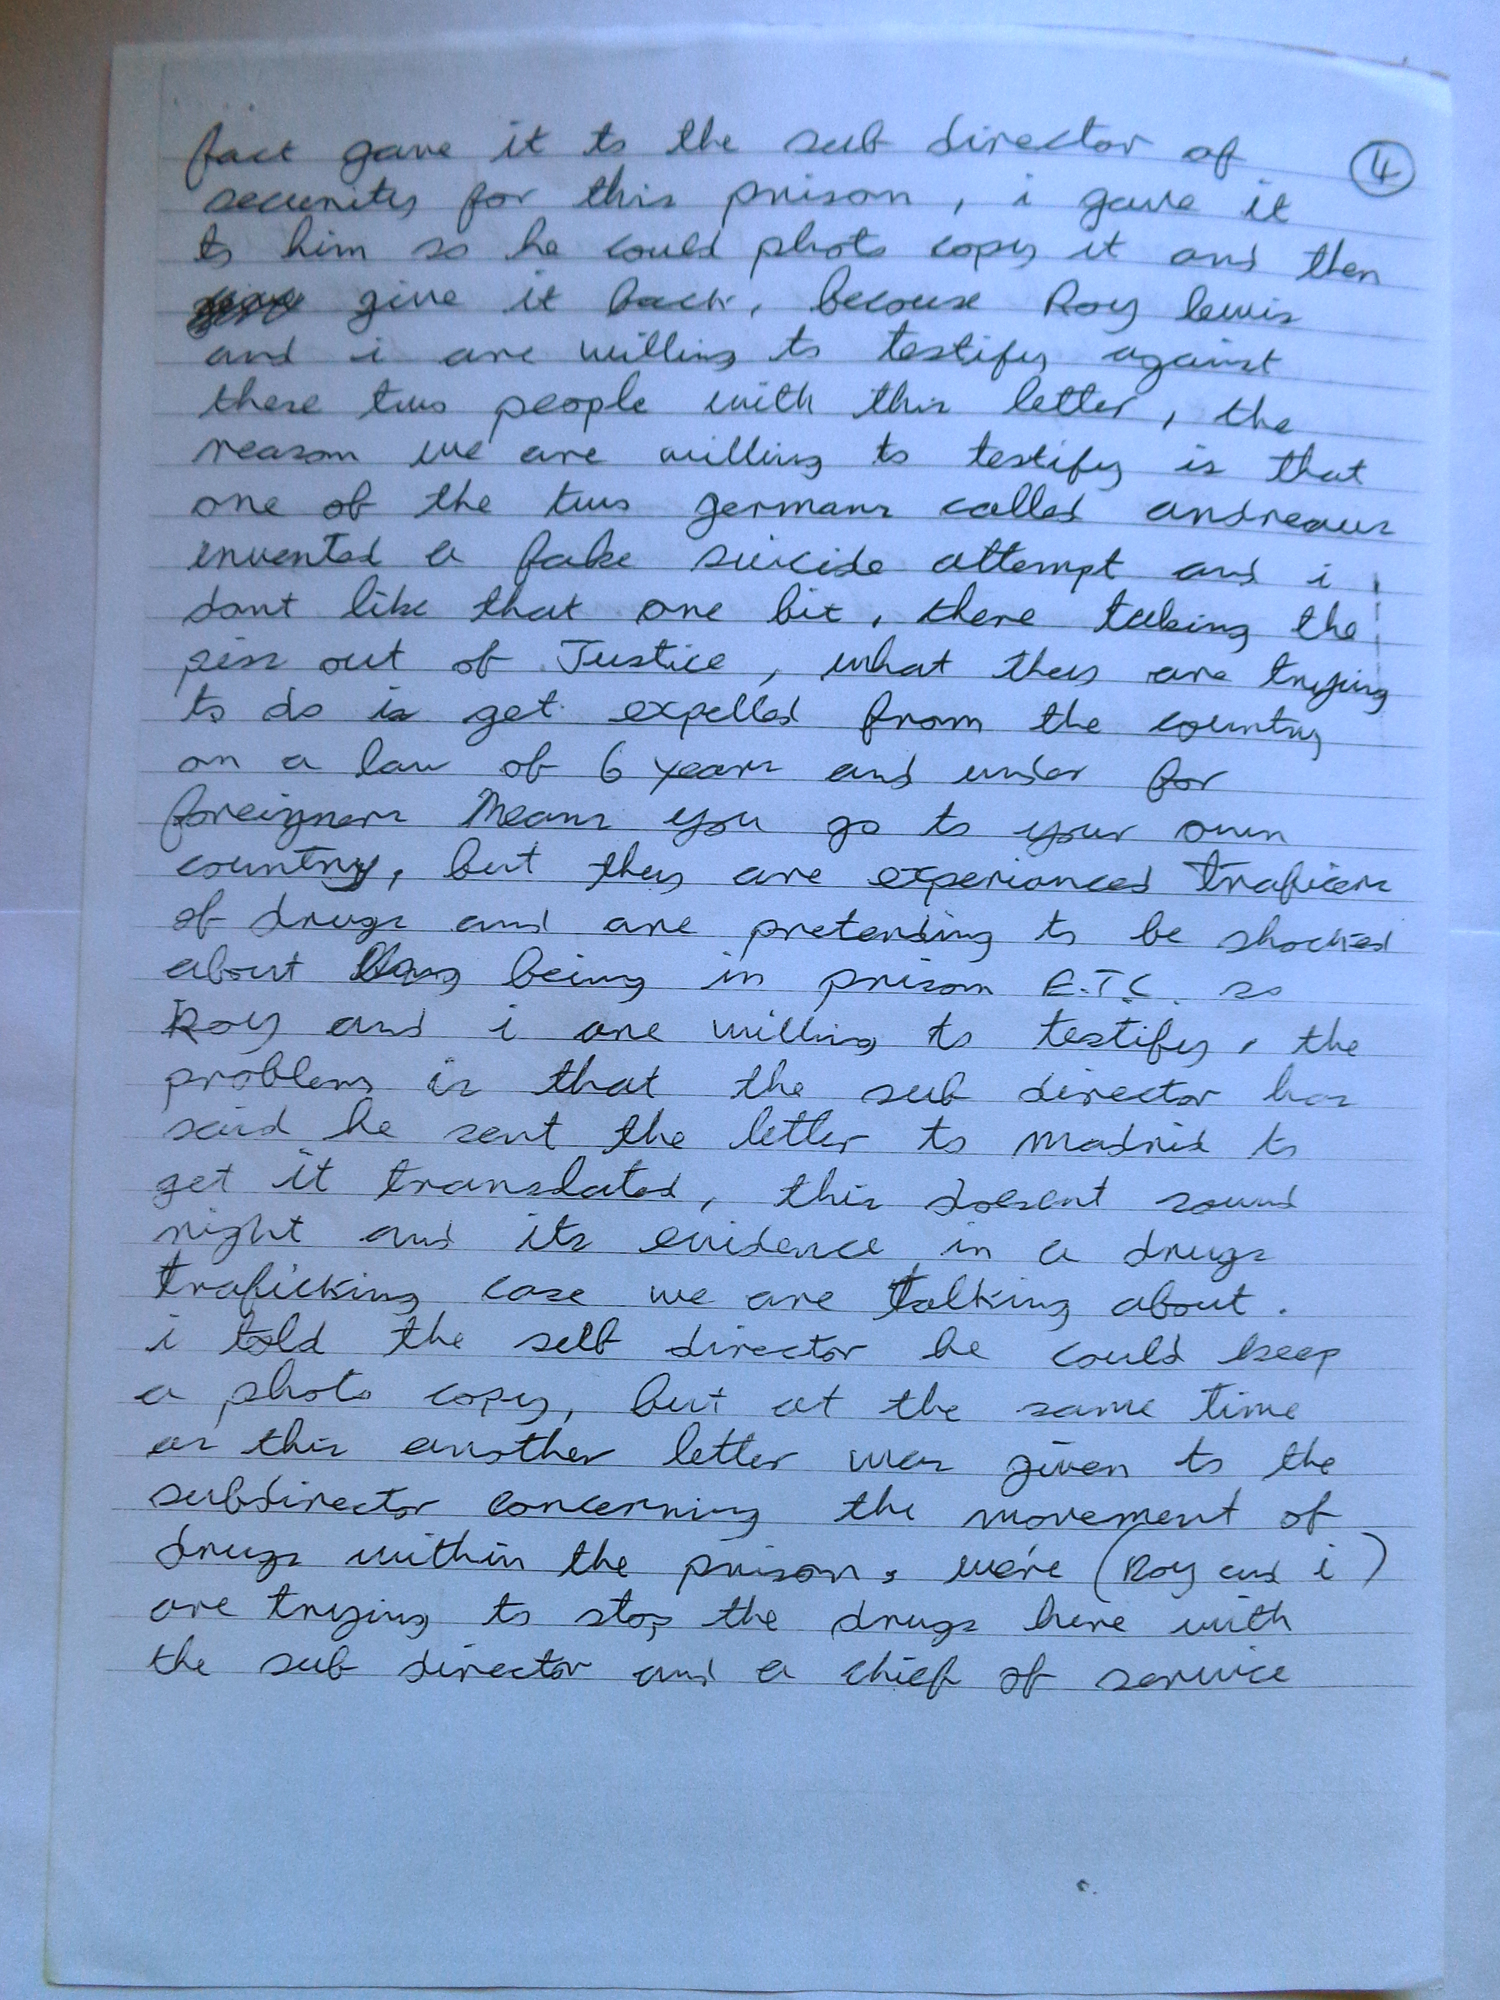 fact gave it to the sub director of
4
security for this prison, i gave it
to him so he could photo copy it and then
give it back, because Roy lewis
and i are willing to testify against
these two people with this letter, the
reason we are willing to testify is that
one of the two germans called andreaus
invented a fake suicide attempt and i
dont like that one bit, there taking the
piss out of Justice, what they are trying
to do is get expelled from the country
on a law of 6 years and under for
foreigners Means you go to your own
country, but they are experianced traficers
of drugs and are pretending to be shocked
about being in prison E.T.C. so
Roy and i are willing to testify, the
problem is that the sub director has
said he sent the letter to Madrid to
get it translated, this doesent sound
right and its evidence in a drugs
traficking case we are talking about.
i told the sub director he could keep
a photo copy, but at the same time
as this another letter was given to the
subdirector concerning the movement of
drugs within the prison, we're (Roy and i)
are trying to stop the drugs here with
the sub director and a chief of service